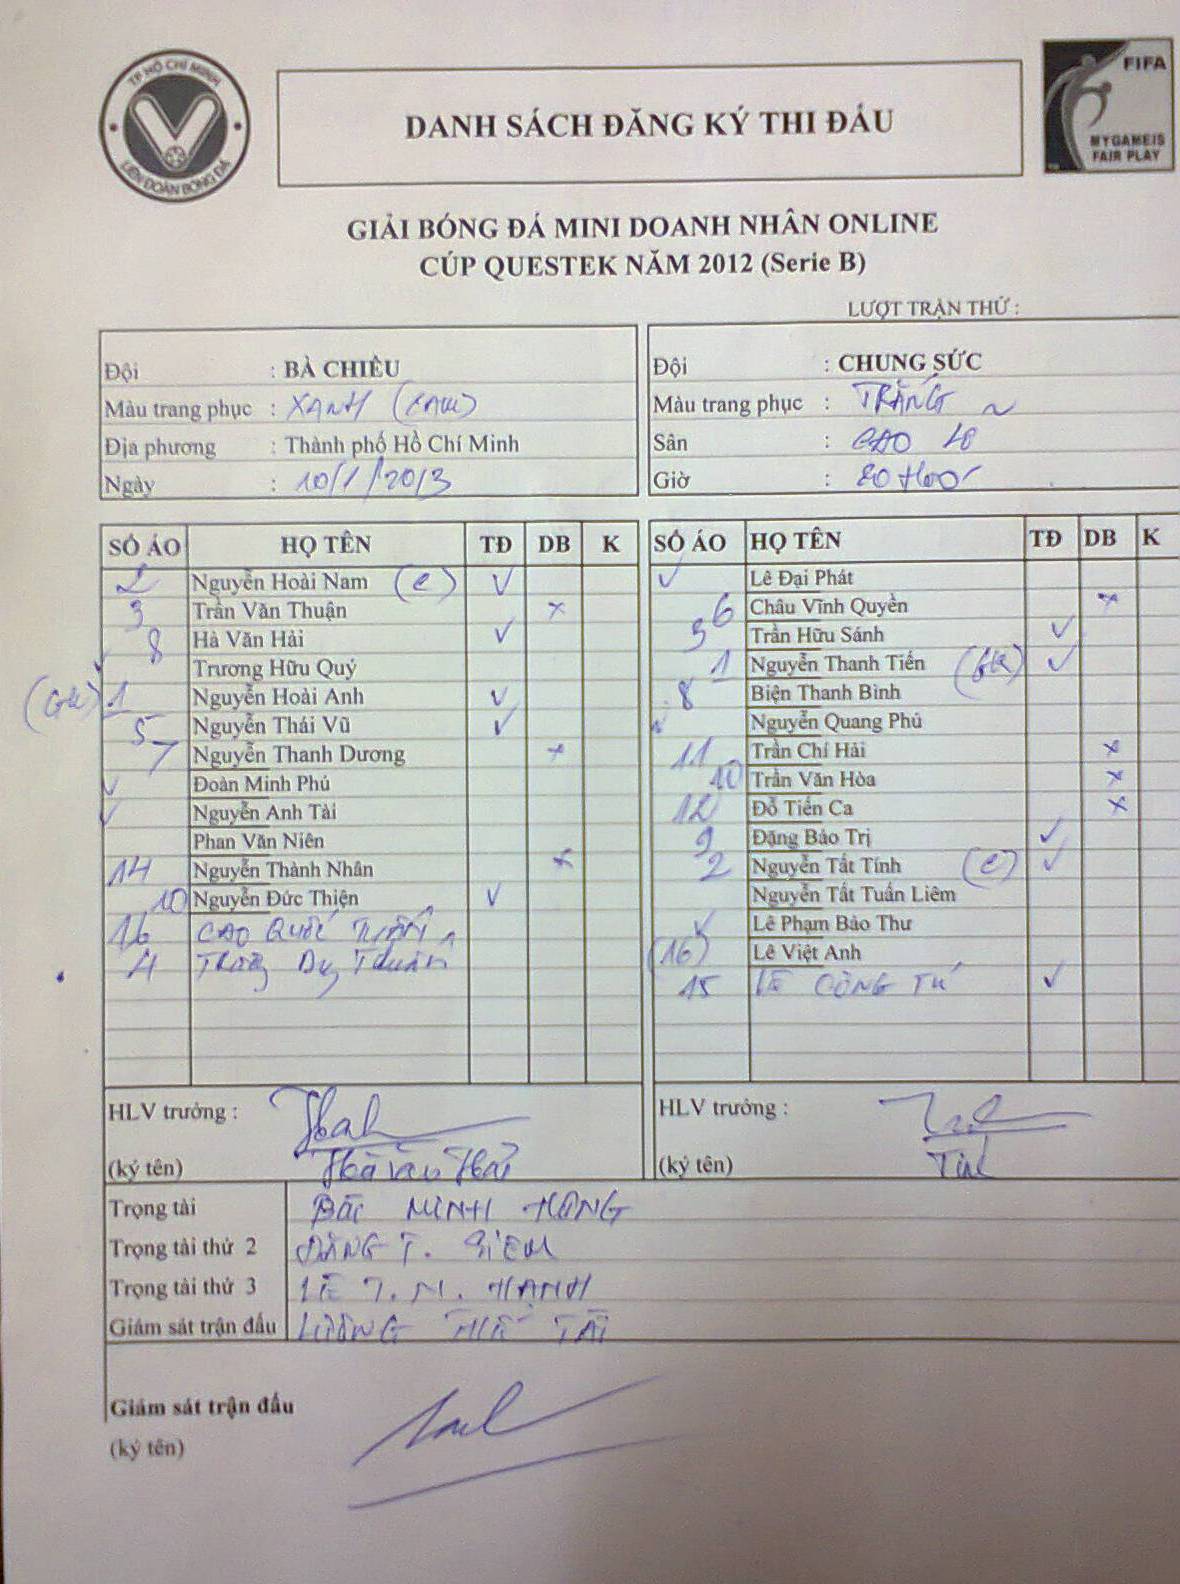 TP HỒ CHÍ MINH
LIÊN ĐOÀN BÓNG ĐÁ
DANH SÁCH ĐĂNG KÝ THI ĐẤU
FIFA
MY GAME IS
FAIR PLAY
GIẢI BÓNG ĐÁ MINI DOANH NHÂN ONLINE
CÚP QUESTEK NĂM 2012 (Serie B)
LƯỢT TRẬN THỨ :
Đội : BÀ CHIỂU
Màu trang phục : XANH (CAM)
Địa phương : Thành phố Hồ Chí Minh
Ngày : 10/1/2013
Đội : CHUNG SỨC
Màu trang phục : TRẮNG
Sân : CAO LỖ
Giờ :
SỐ ÁO HỌ TÊN TĐ DB K
2 Nguyễn Hoài Nam (C) ✓
3 Trần Văn Thuận x
8 Hà Văn Hải ✓
✓ Trương Hữu Quý
(GK) 1 Nguyễn Hoài Anh ✓
5 Nguyễn Thái Vũ ✓
7 Nguyễn Thanh Dương x
✓ Đoàn Minh Phú
✓ Nguyễn Anh Tài
Phan Văn Niên
14 Nguyễn Thành Nhân x
10 Nguyễn Đức Thiện ✓
16 CAO QUỐC
4 Duy Thuận
HLV trưởng :
(ký tên) Hà Văn Hải
SỐ ÁO HỌ TÊN TĐ DB K
✓ Lê Đại Phát
6 Châu Vĩnh Quyền x
5 Trần Hữu Sánh ✓
1 Nguyễn Thanh Tiến (GK) ✓
8 Biện Thanh Bình
✓ Nguyễn Quang Phú
11 Trần Chí Hải x
10 Trần Văn Hòa x
12 Đỗ Tiến Ca x
9 Đặng Bảo Trị ✓
2 Nguyễn Tất Tính (C) ✓
Nguyễn Tất Tuấn Liêm
✓ Lê Phạm Bảo Thư
(16) Lê Việt Anh
15 LÊ CÔNG TÚ ✓
HLV trưởng :
(ký tên) Tính
Trọng tài MINH HÙNG
Trọng tài thứ 2 ĐẶNG T.
Trọng tài thứ 3 LÊ T. M. HẠNH
Giám sát trận đấu LƯƠNG THẾ TÀI
Giám sát trận đấu
(ký tên)